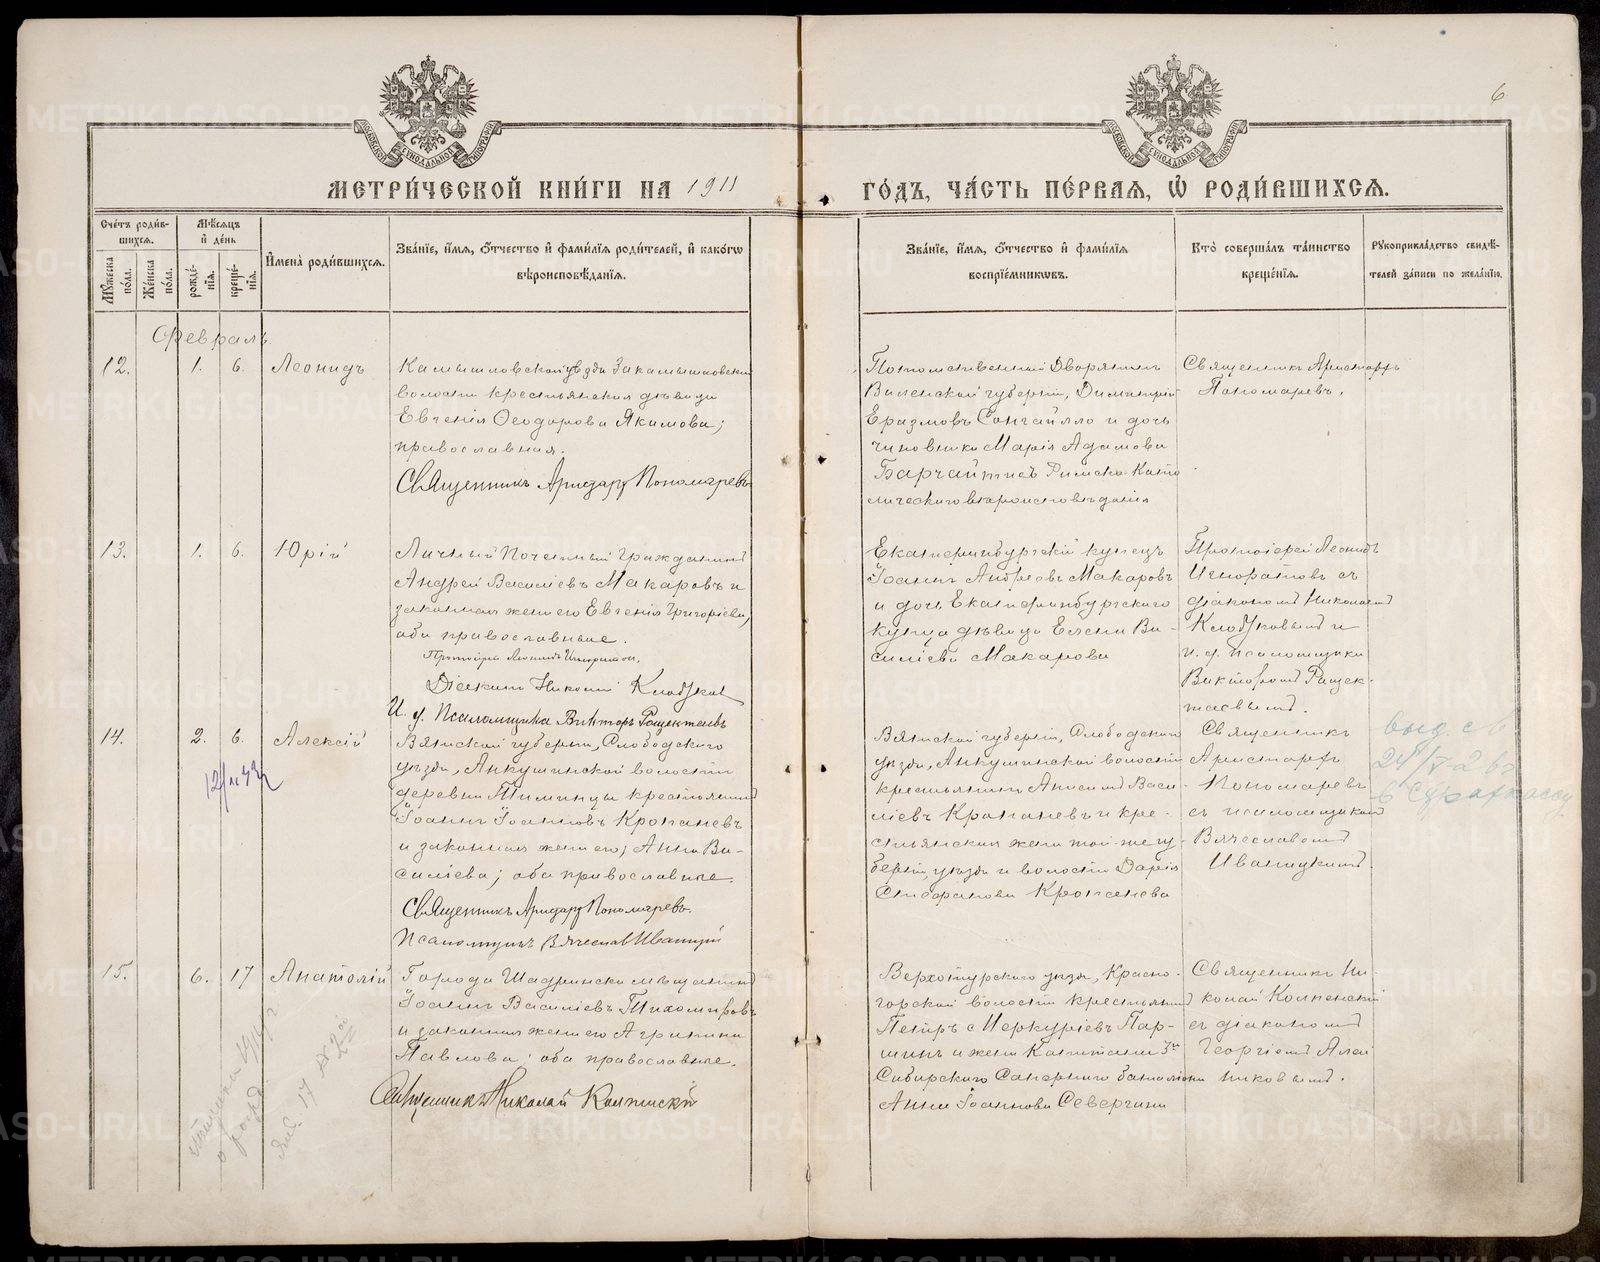 6
МЕТРИ́ЧЕСКОЙ КНИ́ГИ НА 1911
ГО́ДЪ, ЧА́СТЬ ПЕ́РВАѦ, Ѡ РОДИ́ВШИХСѦ.
Сче́тъ роди́в-
шихсѧ.
Мѣ́сѧцъ
и де́нь
Мꙋ́жеска по́ла.
Же́нска по́ла.
рожде́-
нїѧ.
креще́-
нїѧ.
Имена̀ роди́вшихсѧ.
Зва́нїе, и́мѧ, ѻ́тчество и фами́лїѧ роди́телей, и како́гѡ
вѣроисповѣ́данїѧ.
Зва́нїе, и́мѧ, ѻ́тчество и фами́лїѧ
воспрїе́мникѡвъ.
Кто̀ соверша́лъ та́инство
креще́нїѧ.
Рꙋкоприкла́дство свидѣ́-
телей за́писи по жела́нїю.
Февраль
12.
1.
6.
Леонидъ
Камышловскаго уѣзда Закамышловской
волости крестьянская дѣвица
Евгенія Ѳеодорова Якимова;
православная.
Священникъ Аристархъ Пономаревъ
Потомственный Дворянинъ
Виленской губерніи, Димитрій
Еразмовъ Сонгайлло и дочь
чиновника Марія Адамова
Барчайтисъ Римско-Като
лическаго вѣроисповѣданія
Священникъ Аристархъ
Пономаревъ.
13.
1.
6.
Юрій
Личный Почетный Гражданинъ
Андрей Василіевъ Макаровъ и
законная жена его Евгенія Григоріева,
оба православные.
Протоіерей Леонидъ Игноратовъ.
Діаконъ Николай
И. д. Псаломщика Викторъ
Екатеринбургскій купецъ
Іоаннъ Андреевъ Макаровъ
и дочь Екатеринбургскаго
купца дѣвица Елена Ва-
силіева Макарова
Протоіерей Леонидъ
Игноратовъ съ
діакономъ Николаемъ
и
и. д. псаломщика
Викторомъ
14.
2.
6.
Алексій
Вятской губерніи, Слободского
уѣзда, Анкушинской волости
деревни Тиминцы крестьянинъ
Іоаннъ Іоанновъ Кропаневъ
и законная жена его, Анна Ва-
силіева; оба православные.
Священникъ Аристархъ Пономаревъ.
Псаломщикъ Вячеславъ Иваницкій
Вятской губерніи, Слободского
уѣзда, Анкушинской волости
крестьянинъ Анисимъ Васи-
ліевъ Кропаневъ и кре-
стьянская жена той-же гу-
берніи, уѣзда и волости Дарія
Стефанова Кропанева
Священникъ
Аристархъ
Пономаревъ
съ псаломщикомъ
Вячеславомъ
Иваницкимъ.
выд. св
24/V-26 г
в страхкассу
15.
6.
17
Анатолій
Города Шадринска мѣщанинъ
Іоаннъ Василіевъ Тихомировъ
и законная жена его Агрипина
Павлова; оба православные.
Священникъ Николай Колпинскій
Верхотурскаго уѣзда, Красно-
горской волости крестьянинъ
Петръ Меркуріевъ Пар-
шинъ и жена Капитана 3го
Сибирскаго Сапернаго баталіона
Анна Іоаннова Севергина
Священникъ Ни-
колай Колпенскій
съ діакономъ
Георгіемъ Алей
никовымъ.